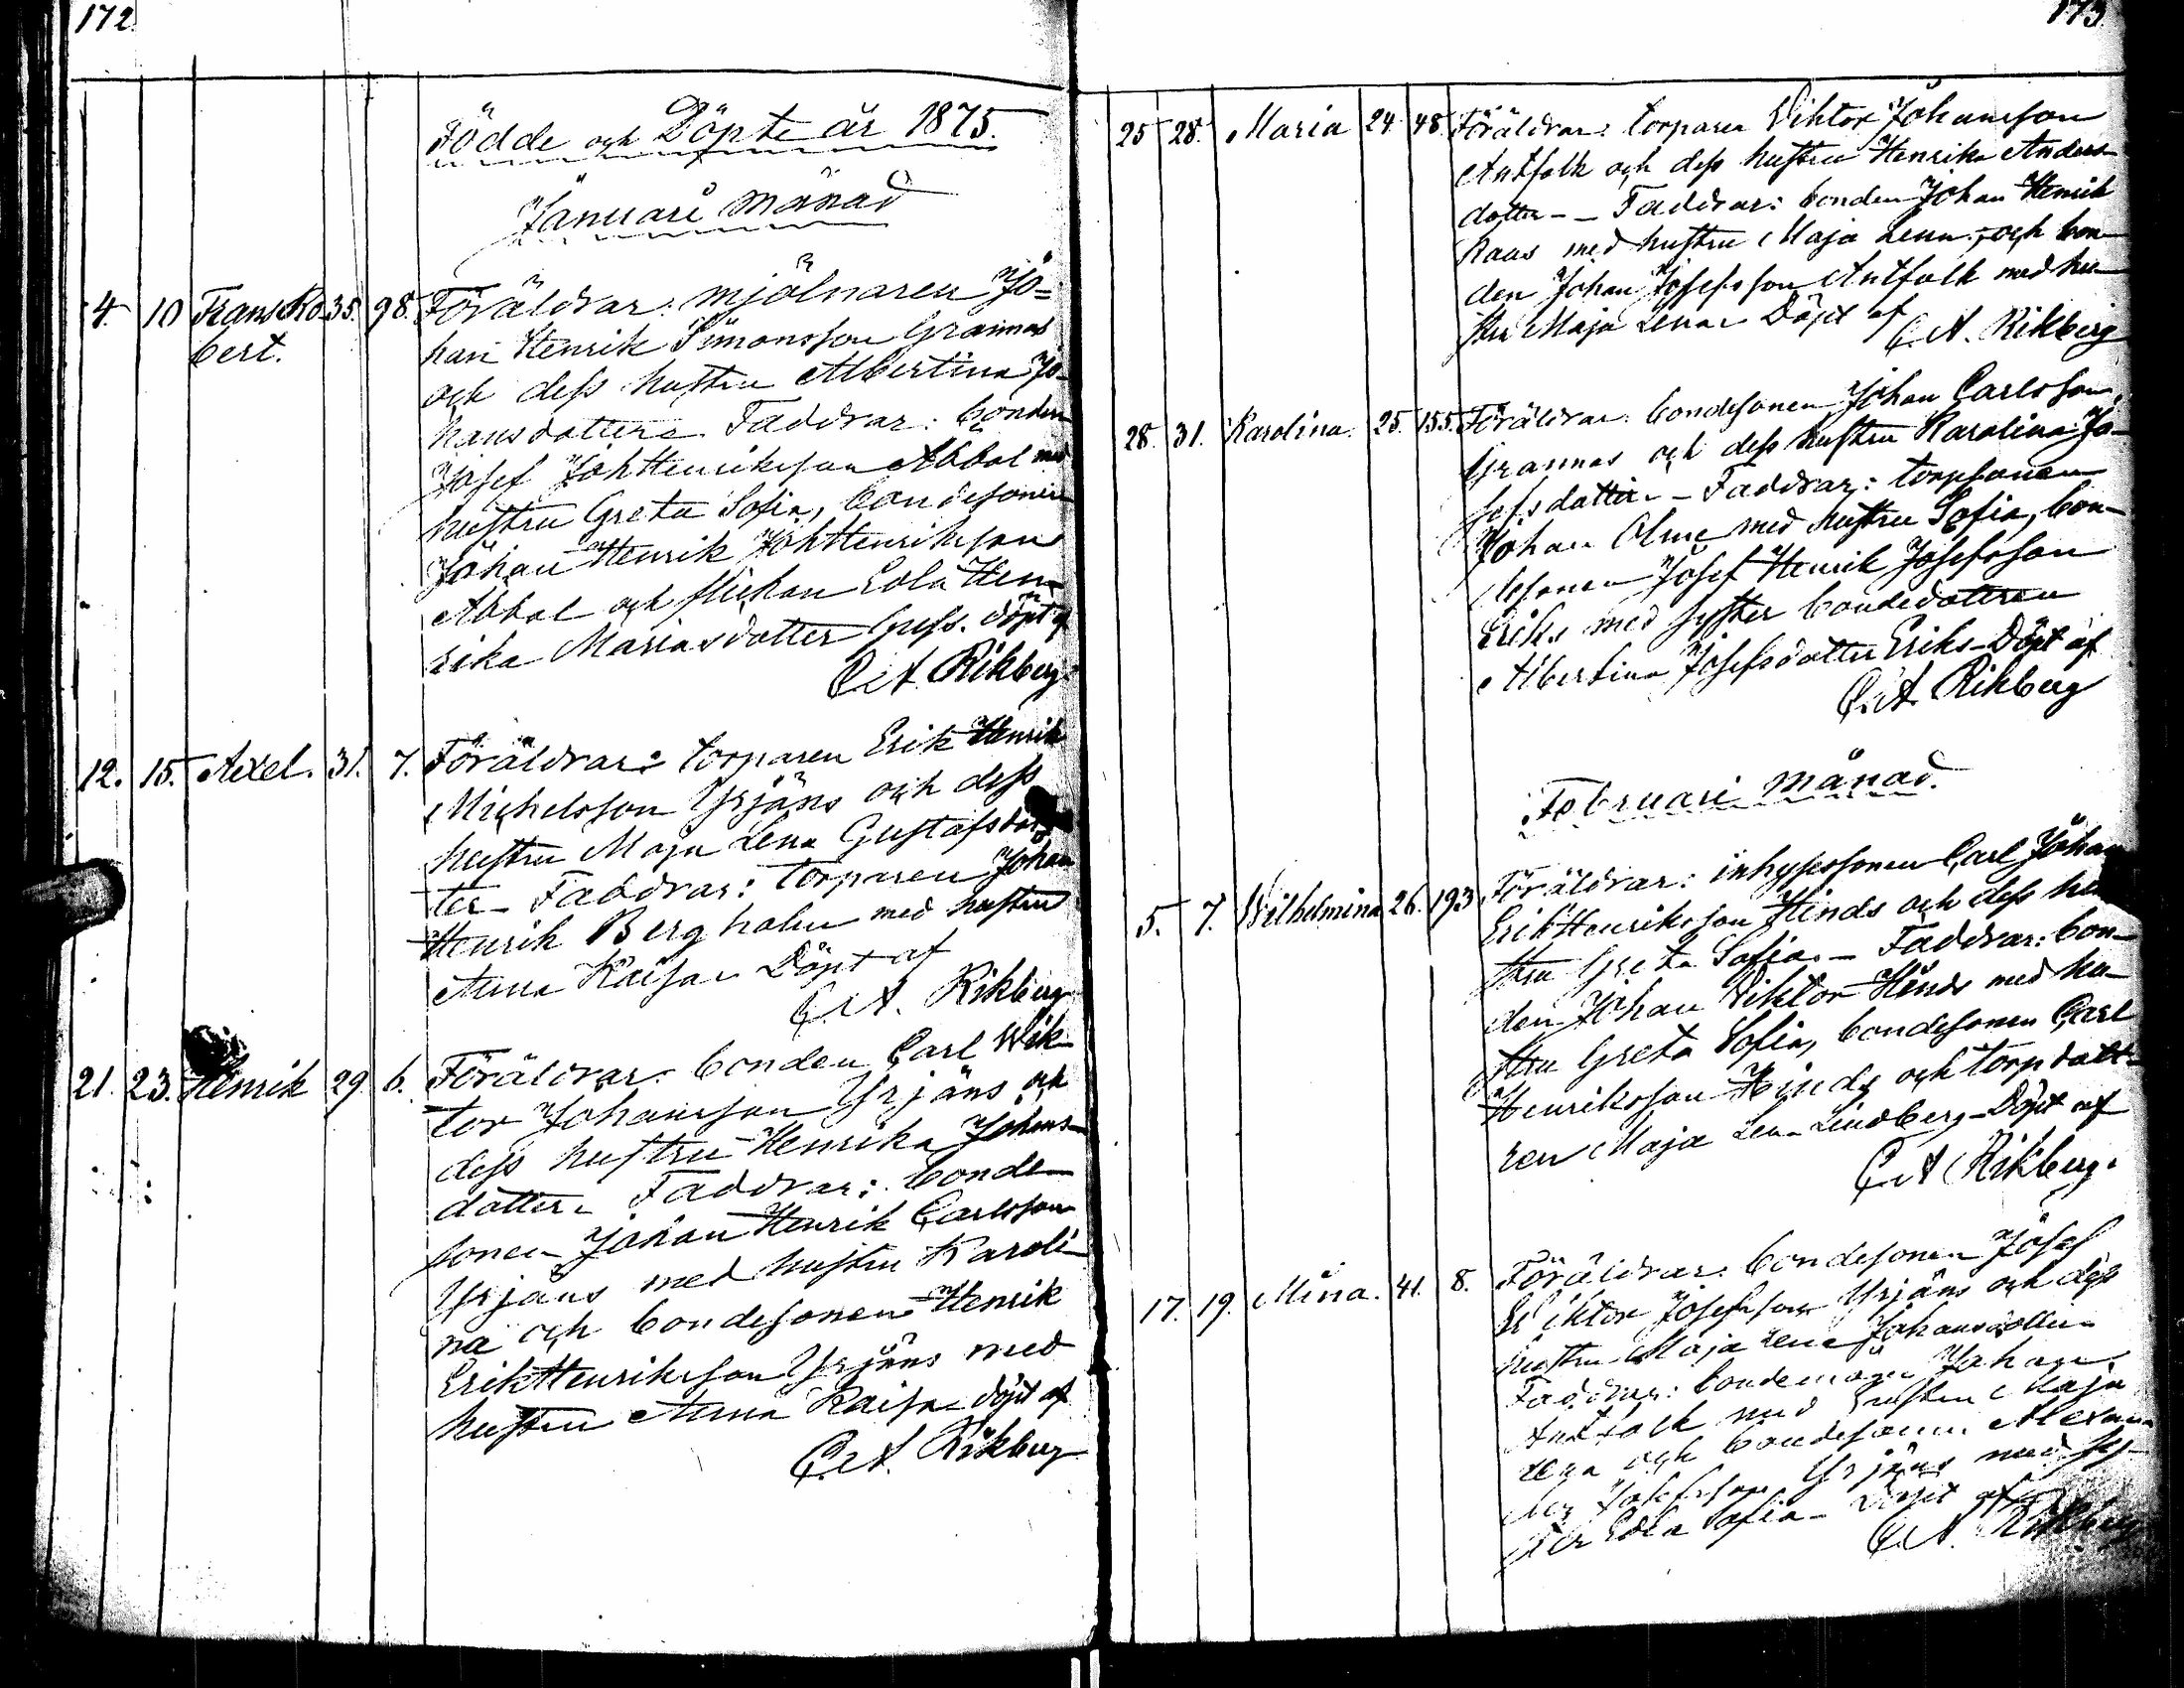 172.
Födde och Döpte år 1875.
Januari månad
4. 10 Frans Ro- 35. 98. Föräldrar: mjölnaren Jo=
bert. han Henrik Simonsson Grannas
och dess hustru Albertina Jo-
hansdotter. Faddrar: bonden
Josef JohHenriksson Abbal med
hustru Greta Sofia, bondesonen
Johan Henrik JohHenriksson
Abbal och flickan Eola Hen-
rika Mariasdotter Guss. döpt af
C. A. Rikberg.
12. 15. Axel. 31. 7. Föräldrar: torparen Erik Henrik
Michelsson Yrjäns och dess
hustru Maja Lena Gustafsdot-
ter - Faddrar: torparen Johan
Henrik Bergholm med hustru
Anna Kaisa - Döpt af
C. A. Rikberg
21. 23. Henrik 29 6. Föräldrar: bonden Carl Wik-
tor Johansson Yrjäns och
dess hustru Henrika Johans-
dotter - Faddrar: bonde-
sonen Johan Henrik Carlsson
Yrjäns med hustru Karoli-
na och bondesonen Henrik
ErikHenriksson Yrjäns med
hustru Anna Kaisa - döpt af
C. A. Rikberg
173.
25 28. Maria 24 48. Föräldrar: torparen Viktor Johansson
Antfolk och dess hustru Henrika Anders-
dotter - - Faddrar: bonden Johan Henrik
Kaas med hustru Maja Lena, och bon-
den Johan Josefsson Antfolk med hu-
stru Maja Lena - Döpt af
C. A. Rikberg
28. 31. Karolina. 25. 155. Föräldrar: bondesonen Johan Carlsson,
Grannas och dess hustru Karolina Jo-
sefsdotter - Faddrar: torpsonen
Johan Olme med hustru Sofia, bon-
desonen Josef Henrik Josefsson
Eriks med syster bondedottren
Albertina Josefsdotter Eriks - Döpt af
C. A. Rikberg
Februari månad.
5. 7. Wilhelmina 26. 193. Föräldrar: inhysessonen Carl Johan
ErikHenriksson Hinds och dess hu-
stru Greta Sofia. - Faddrar: bon-
den Johan Viktor Hinds med hu-
stru Greta Sofia, bondesonen Carl
Henriksson Hinds och torpdott-
ren Maja Lena Lindberg - Döpt af
C. A. Rikberg.
17. 19. Mina. 41. 8. Föräldrar: bondesonen Josef
Wiktor Josefsson Yrjäns och dess
hustru Maja Lena Johansdotter -
Faddrar: Johan
Antfolk med hustru Maja
Lena och bondesonen Alexan-
der Yrjäns med sy-
ster Eola Sofia - Döpt af
C. A. Rikberg